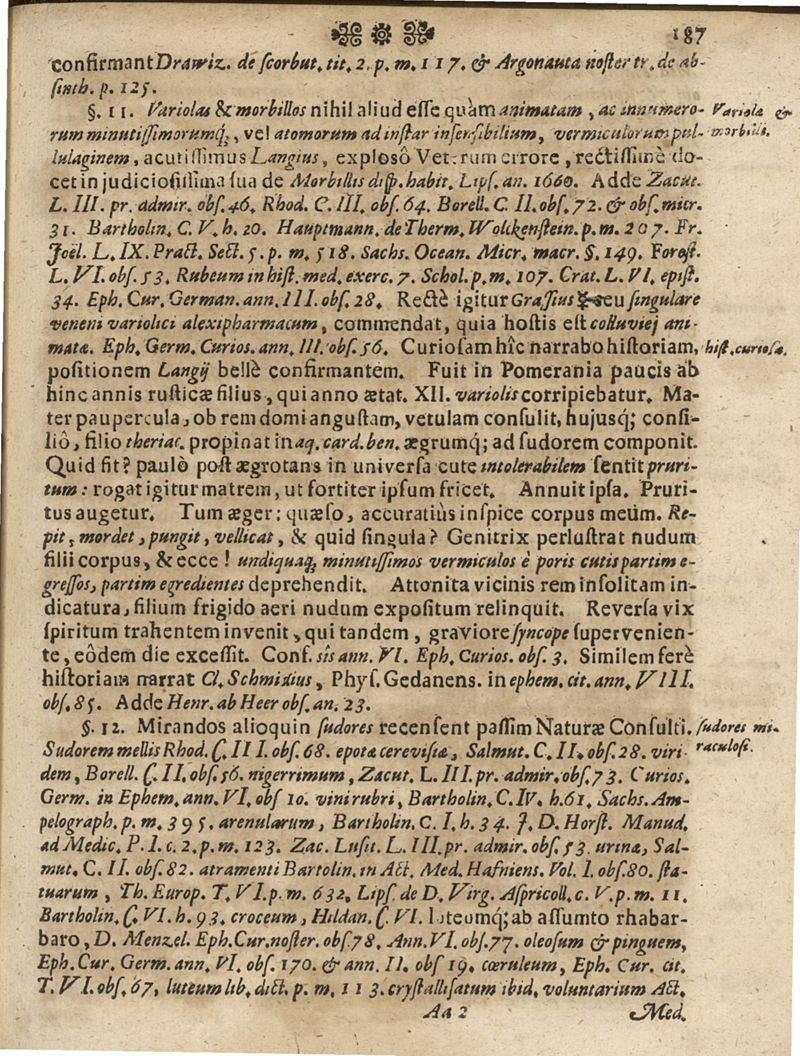 187
confirmant Drawiz. de ſcorbut. tit. 2. p. m. 117. & Argonauta noſter tr. de ab-
ſinth. p. 125.
§. 11. Variolas & morbillos nihil aliud eſſe quàm animatam, ac innumero-
Variolæ &
rum minutiſſimorumq́;, vel atomorum ad inſtar inſenſibilium, vermiculorum pul-
morbilli.
lulaginem, acutiſſimus Langius, exploſô Veterum errore, rectiſſimè do-
cet in judicioſiſſima ſua de Morbillis diſp. habit. Lipſ. an. 1660. Adde Zacut.
L. III. pr. admir. obſ. 46. Rhod. C. III. obſ. 64. Borell. C. II. obſ. 72. & obſ. micr.
31. Bartholin. C. V. h. 20. Hauptmann. de Therm. Wolckenſtein. p. m. 207. Fr.
Joël. L. IX. Pract. Sect. 5. p. m. 518. Sachs. Ocean. Micr. macr. §. 149. Foreſt.
L. VI. obſ. 53. Rubeum in hiſt. med. exerc. 7. Schol. p. m. 107. Crat. L. VI. epiſt.
34. Eph. Cur. German. ann. III. obſ. 28. Rectè igitur Graſſius ſeu ſingulare
veneni variolici alexipharmacum, commendat, quia hoſtis eſt colluviej ani-
matæ. Eph. Germ. Curios. ann. III. obſ. 56. Curioſam hîc narrabo hiſtoriam,
hiſt. curioſa.
poſitionem Langij bellè confirmantem. Fuit in Pomerania paucis ab
hinc annis ruſticæ filius, qui anno ætat. XII. variolis corripiebatur. Ma-
ter paupercula, ob rem domi anguſtam, vetulam conſulit, hujusq́; conſi-
liô, filio theriac. propinat in aq. card. ben. ægrumq́; ad ſudorem componit.
Quid fit? paulò poſt ægrotans in univerſa cute intolerabilem ſentit pruri-
tum: rogat igitur matrem, ut fortiter ipſum fricet. Annuit ipſa. Pruri-
tus augetur. Tum æger: quæſo, accuratiùs inſpice corpus meum. Re-
pit, mordet, pungit, vellicat, & quid ſingula? Genitrix perluſtrat nudum
filii corpus, & ecce! undiquaq́; minutiſſimos vermiculos è poris cutis partim e-
greſſos, partim egredientes deprehendit. Attonita vicinis rem inſolitam in-
dicatura, filium frigido aeri nudum expoſitum relinquit. Reverſa vix
ſpiritum trahentem invenit, qui tandem, graviore ſyncope ſupervenien-
te, eôdem die exceſſit. Conf. ſîs ann. VI. Eph. Curios. obſ. 3. Similem ferè
hiſtoriam narrat Cl. Schmidius, Phyſ. Gedanens. in ephem. cit. ann. VIII.
obſ. 85. Adde Henr. ab Heer obſ. an. 23.
§. 12. Mirandos alioquin ſudores recenſent paſſim Naturæ Conſulti.
ſudores mi-
Sudorem mellis Rhod. C. III. obſ. 68. epotæ cereviſiæ, Salmut. C. II. obſ. 28. viri-
raculoſi.
dem, Borell. C. II. obſ. 56. nigerrimum, Zacut. L. III. pr. admir. obſ. 73. Curios.
Germ. in Ephem. ann. VI. obſ 10. vini rubri, Bartholin. C. IV. h. 61. Sachs. Am-
pelograph. p. m. 395. arenularum, Bartholin. C. I. h. 34. J. D. Horſt. Manud.
ad Medic. P. I. c. 2. p. m. 123. Zac. Luſit. L. III. pr. admir. obſ. 53. urinæ, Sal-
mut. C. II. obſ. 82. atramenti Bartolin. in Act. Med. Hafniens. Vol. I. obſ. 80. ſta-
tuarum, Th. Europ. T. VI. p. m. 632. Lipſ. de D. Virg. Aſpricoll. c. V. p. m. 11.
Bartholin. C. VI. h. 93. croceum, Hildan. C. VI. luteumq́; ab aſſumto rhabar-
baro, D. Menzel. Eph. Cur. noſter. obſ. 78. Ann. VI. obſ. 77. oleoſum & pinguem,
Eph. Cur. Germ. ann. VI. obſ. 170. & ann. II. obſ 19. cœruleum, Eph. Cur. cit.
T. VI. obſ. 67. luteum lib. dict. p. m. 113. cryſtalliſatum ibid. voluntarium Act.
Aa 2
Med.